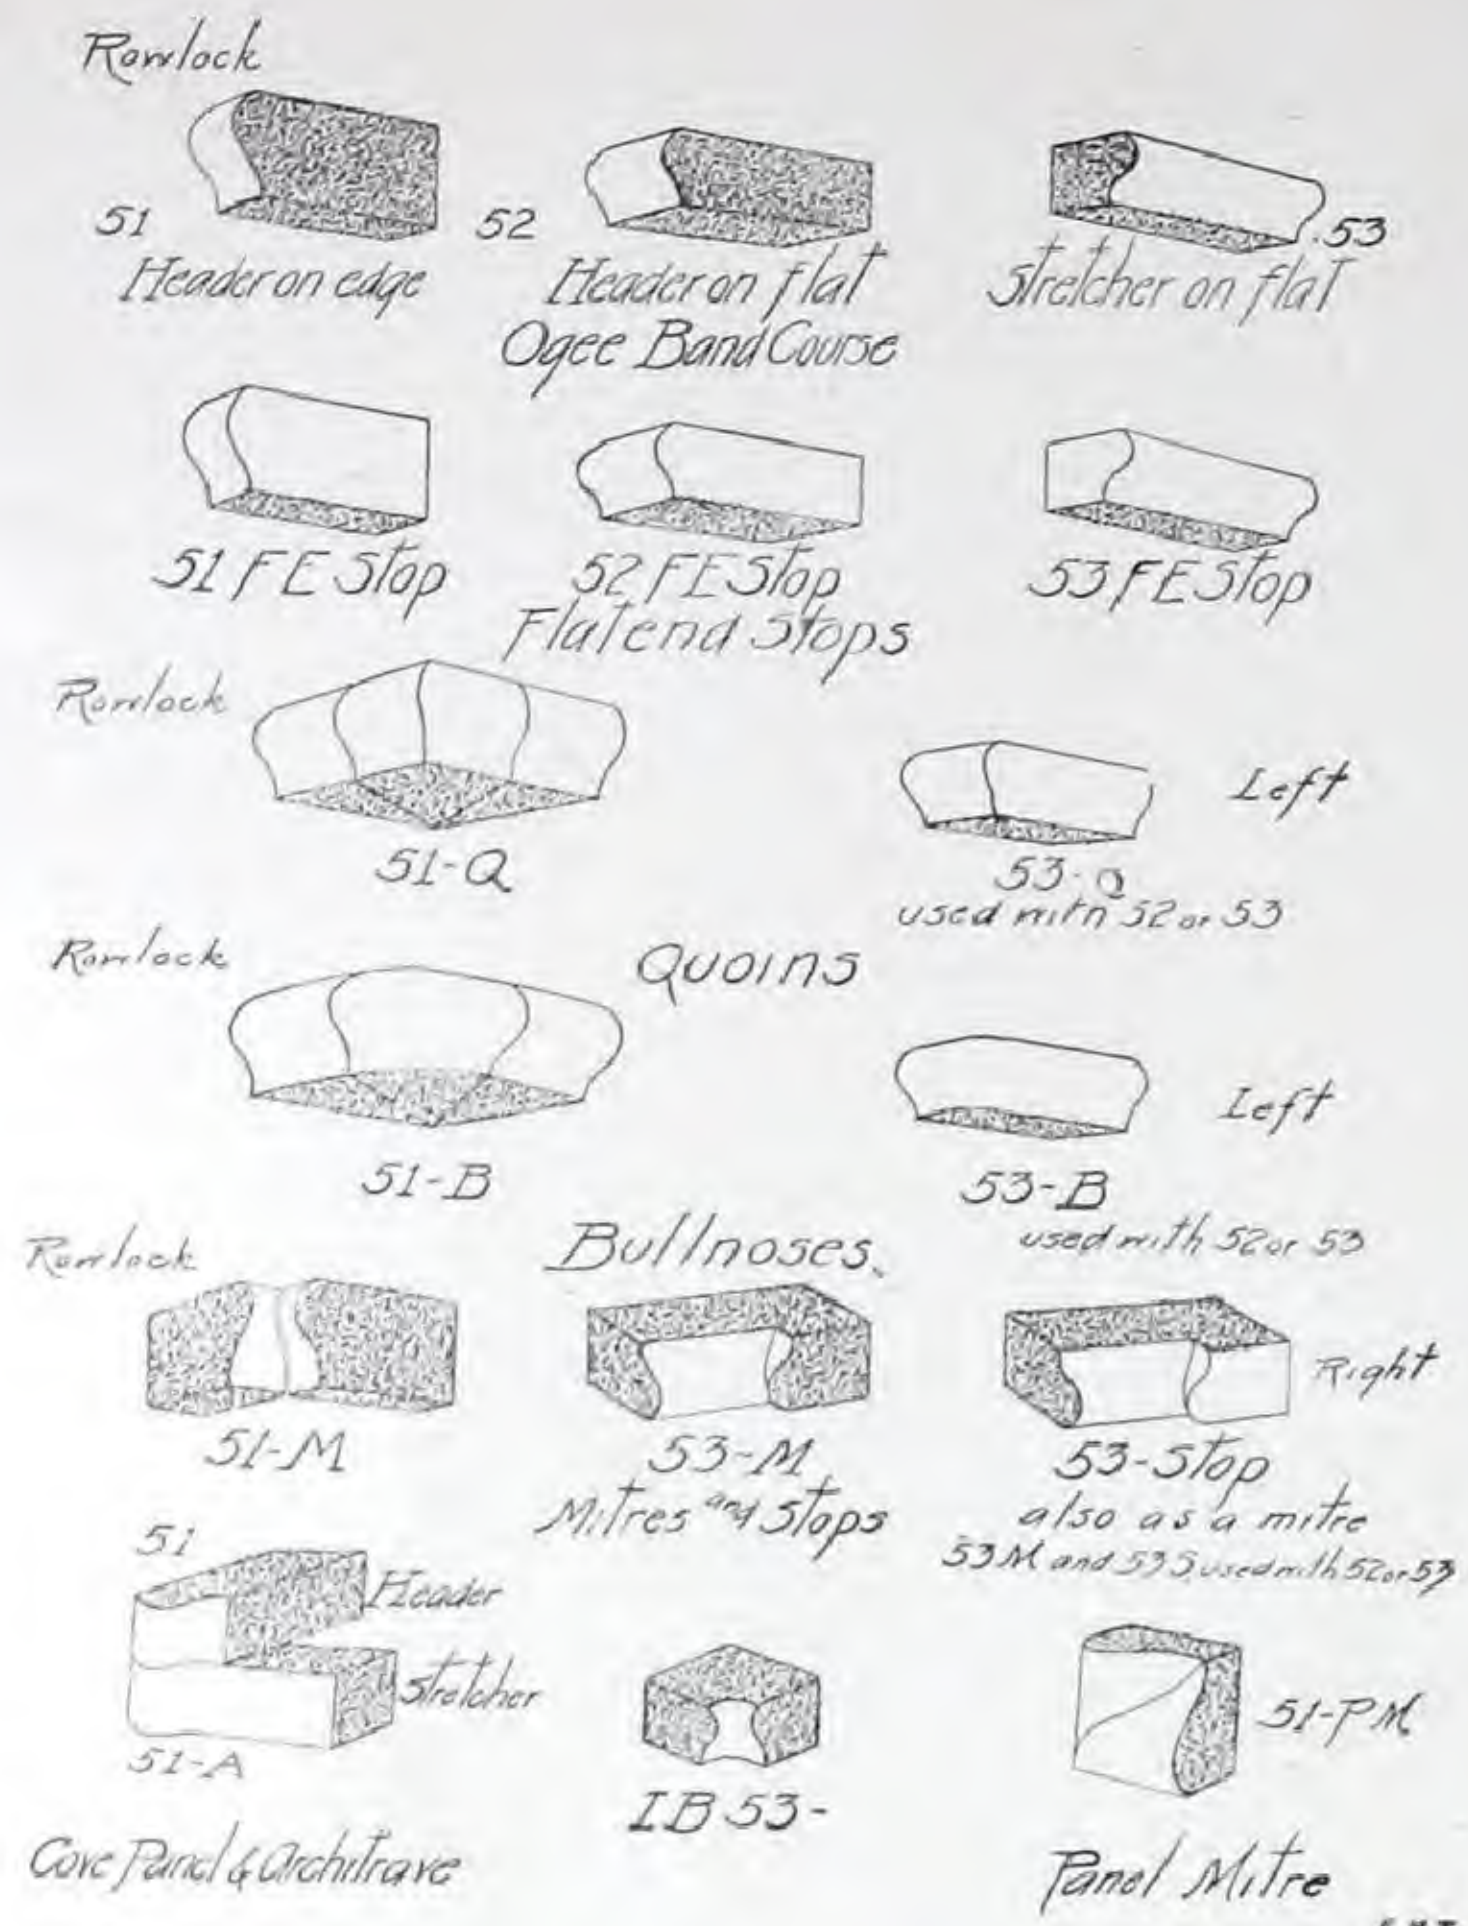 Rowlock
51
52
53
Header on edge
Header on flat
Stretcher on flat
Ogee Band Course
51 FE Stop
52 FE Stop
53 FE Stop
Flat end Stops
Rowlock
Left
51-Q
53-Q
used with 52 or 53
Rowlock
Quoins
Left
51-B
53-B
used with 52 or 53
Rowlock
Bullnoses.
Right
51-M
53-M
53-Stop
Mitres and Stops
also as a mitre
53M and 53S used with 52 or 53
51
Header
Stretcher
51-A
IB 53-
51-PM
Cove Panel & Architrave
Panel Mitre